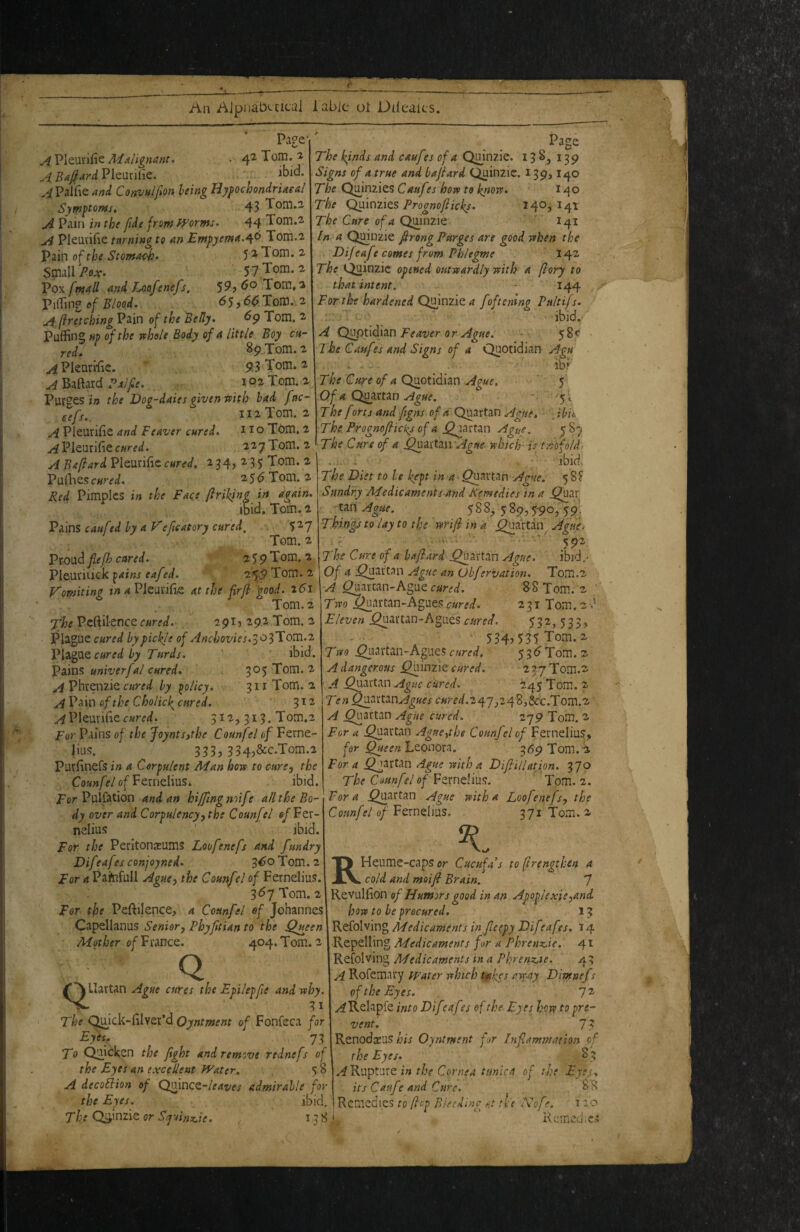 An Alphabetical Table of Diseases.
Page
A Pleurisie Malignant. . 42 Tom. 2
A Bastard Pleurisie. ibid.
A Palsie and Convulsion being Hypochondriacal
Symptoms. 43 Tom.2
A Pain in the side from Worms. 44 Tom.2
A Pleurisie turning to an Empyema.46 Tom.2
Pain of the Stomach. 52 Tom. 2
Small Pox. 57 Tom. 2
Pox small and Loosenefs. 59, 60 Tom. 2
Pissing of Blood. 65, 66 Tom. 2
A stretching Pain of the Belly. 69 Tom. 2
Puffing up of the whole Body of a little Boy cu-
red. 89 Tom. 2
A Pleurisie. 93 Tom. 2
A Bastard Palsie. 102 Tom. 2
Purges in the Dog-daies given with bad suc-
cess. 112 Tom. 2
A Pleurisie and Feaver cured. 110 Tom. 2
A Pleurisie cured. 227 Tom. 2
A Bastard Pleurisie cured. 234, 235 Tom. 2
Pushes cured. 256 Tom. 2
Red Pimples in the Face striking in again.
ibid. Tom. 2
Pains caused by a Vesicatory cured. 527
Tom. 2
Proud flesh cured. 259 Tom. 2
Pleuritick pains eased. 259 Tom. 2
Vomiting in a Pleurisie at the first good. 261
Tom. 2
The Pestilence cured. 291, 292 Tom. 2
Plague cured by pickle of Anchovies.303Tom.2
Plague cured by Turds. ibid.
Pains universal cured. 305 Tom. 2
A Phrenzie cured by policy. 311 Tom. 2
A Pain of the Cholick cured. 312
A Pleurisie cured. 312, 313. Tom.2
For Pains of the Joynts,the Counsel of Ferne-
lius. 333, 334,&c.Tom.2
Pursiness in a Corpulent Man how to cure, the
Counsel of Fernelius. ibid.
For Pulsation and an hissing noise all the Bo-
dy over and Corpulency, the Counsel of Fer-
nelius ibid.
For the Peritonæums Looseness and sundry
Diseases conjoyned. 360 Tom. 2
For a Painfull Ague, the Counsel of Fernelius.
367 Tom. 2
For the Pestilence, a Counsel of Johannes
Capellanus Senior, Physitian to the Queen
Mother of France. 404. Tom. 2
Q
QUartan Ague cures the Epilepsie and why.
31
The Quick-silver'd Oyntment of Fonseca for
Eyes. 73
To Quicken the sight and remove redness of
the Eyes an excellent Water. 58
A decoction of Quince-leaves admirable for
the Eyes. ibid.
The Quinzie or Squinzie. 138
Page
The kinds and causes of a Quinzie. 138, 139
Signs of a true and bastard Quinzie. 139, 140
The Quinzies Causes how to know. 140
The Quinzies Prognosticks. 140, 141
The Cure of a Quinzie 141
In a Quinzie strong Purges are good when the
Disease comes from Phlegme 142
The Quinzie opened outwardly with a story to
that intent. 144
For the hardened Quinzie a softening Pultiss.
ibid.
A Quotidian Feaver or Ague. 58
The Causes and Signs of a Quotidian Agu
The Cure of a Quotidian Ague. 5
Of a Quartan Ague.
The sorts and signs of a Quartan Ague.
The Prognosticks of a Quartan Ague. 587
The Cure of a Quartan Ague which is twofold.
ibid.
The Diet to be kept in a Quartan Ague. 588
Sundry Medicaments and Remedies in a Quar
tan Ague. 588, 589, 590, 59
Things to lay to the wrist in a Quartan Ague.
592
The Cure of a bastard Quartan Ague. ibid.
Of a Quartan Ague an Observation. Tom.2
A Quartan-Ague cured. 88 Tom. 2
Two Quartan-Agues cured. 231 Tom. 2
Eleven Quartan-Agues cured. 532, 533,
534, 535 Tom. 2
Two Quartan-Agues cured. 536 Tom. 2
A dangerous Quinzie cured. 237 Tom.2
A Quartan Ague cured. 245 Tom. 2
Ten QuartanAgues cured.247,248,&c.Tom.2
A Quartan Ague cured. 279 Tom. 2
For a Quartan Ague,the Counsel of Fernelius,
for Queen Leonora. 369 Tom. 2
For a Quartan Ague with a Distillation. 370
The Counsel of Fernelius. Tom. 2.
For a Quartan Ague with a Looseness, the
Counsel of Fernelius. 371 Tom. 2
R
RHeume-caps or Cucufa's to strengthen a
cold and moist Brain. 7
Revulsion of Humors good in an Apoplexie,and
how to be procured. 13
Resolving Medicaments in sleepy Diseases. 14
Repelling Medicaments for a Phrenzie. 41
Resolving Medicaments in a Phrenzie. 43
A Rosemary Water which takes away Dimness
of the Eyes. 72
A Relapse into Diseases of the Eyes how to pre-
vent. 73
Renodæus his Oyntment for Inflammation of
the Eyes. 83
A Rupture in the Cornea tunica of the Eyes,
its Cause and Cure. 88
Remedies to stop Bleeding at the Nose. 120
Remedies